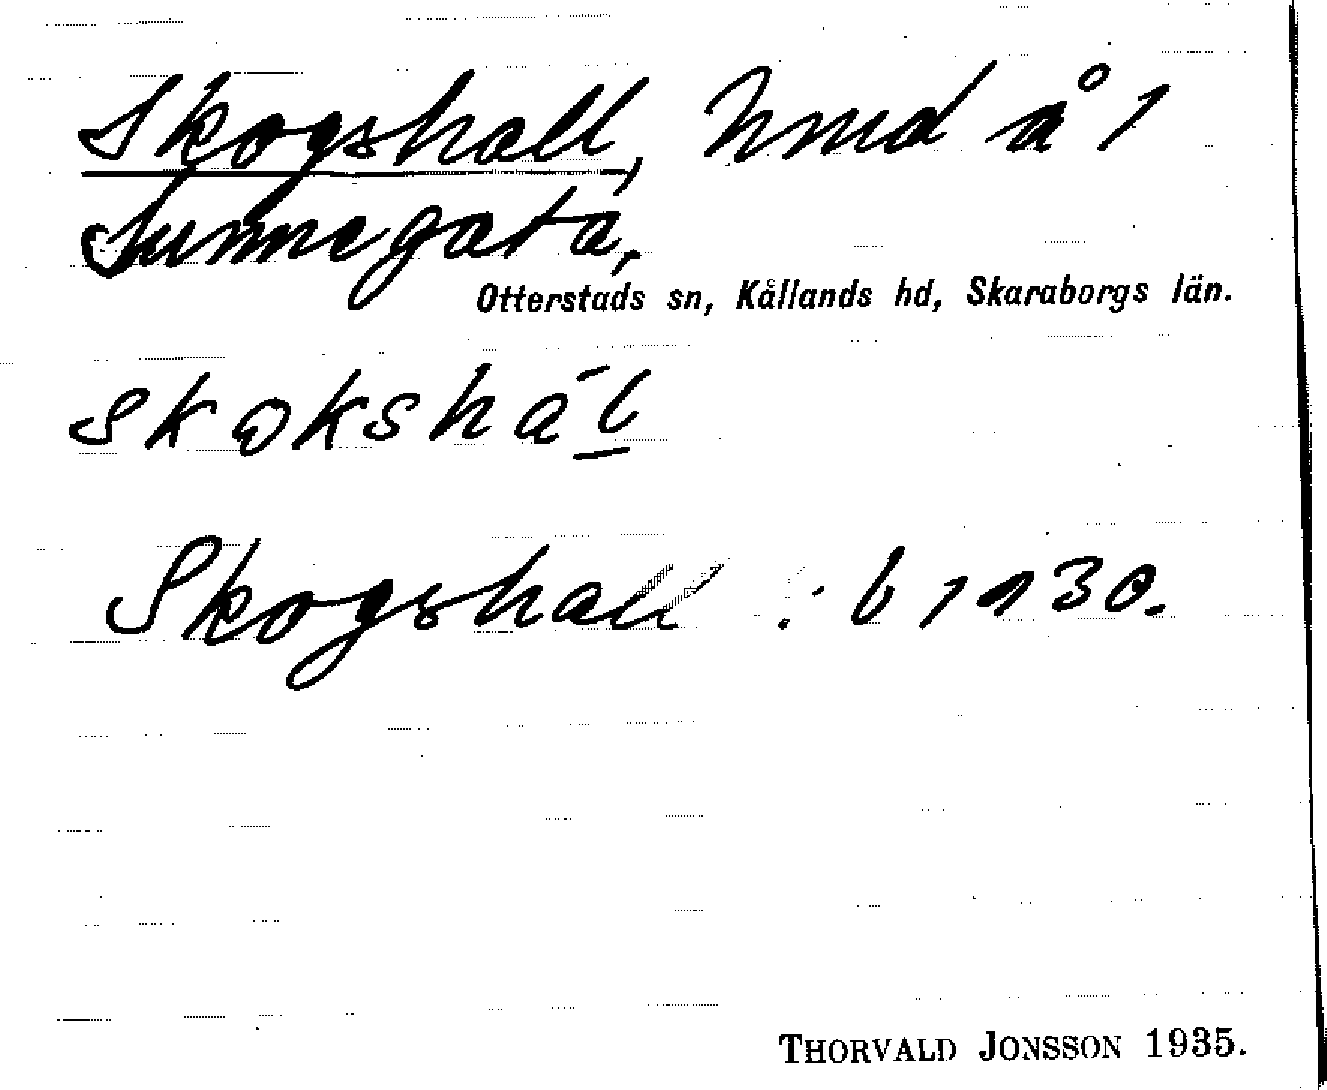 Skogshall, hmd å 1
Sunnegata,
Otterstads sn, Kållands hd, Skaraborgs län.
skokshál
Skogshall : b 1930.
THORVALD JONSSON 1935.